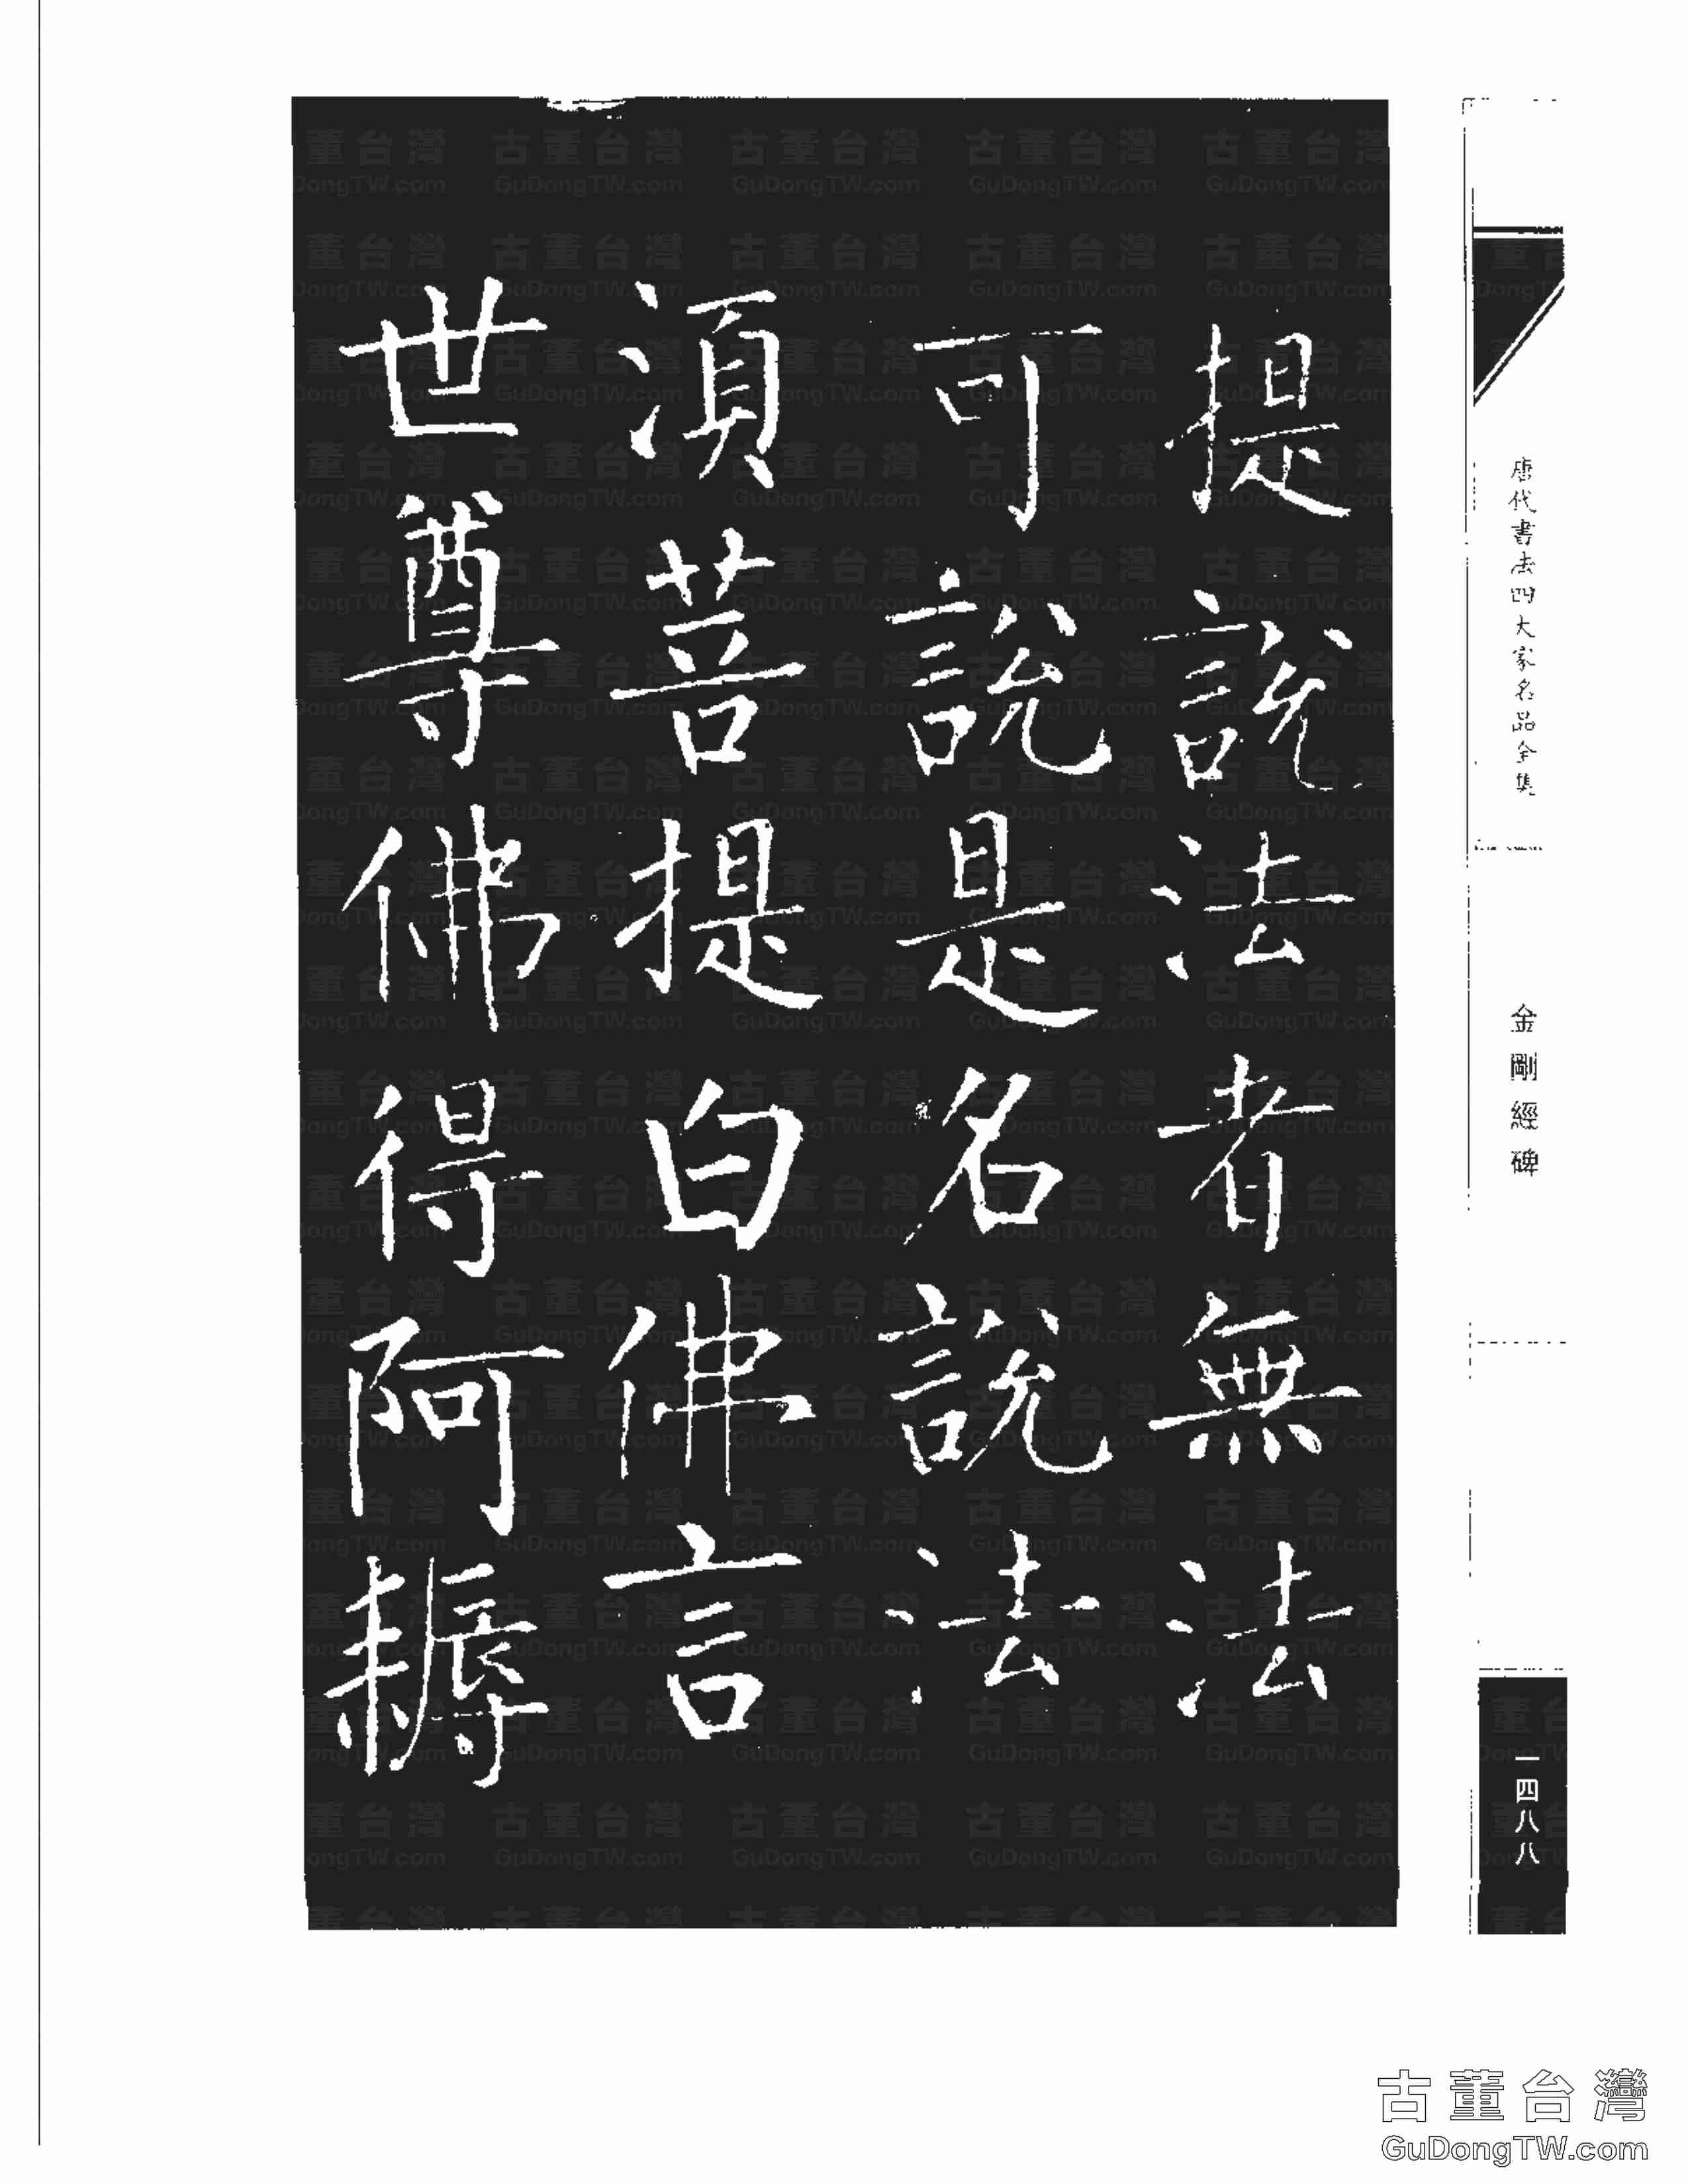 提說法者無法
可說是名說法
湏菩提白佛言
世尊佛得阿耨
唐代書法四大家名品全集
金剛經碑
一四八八
古董台灣
GuDongTW.com